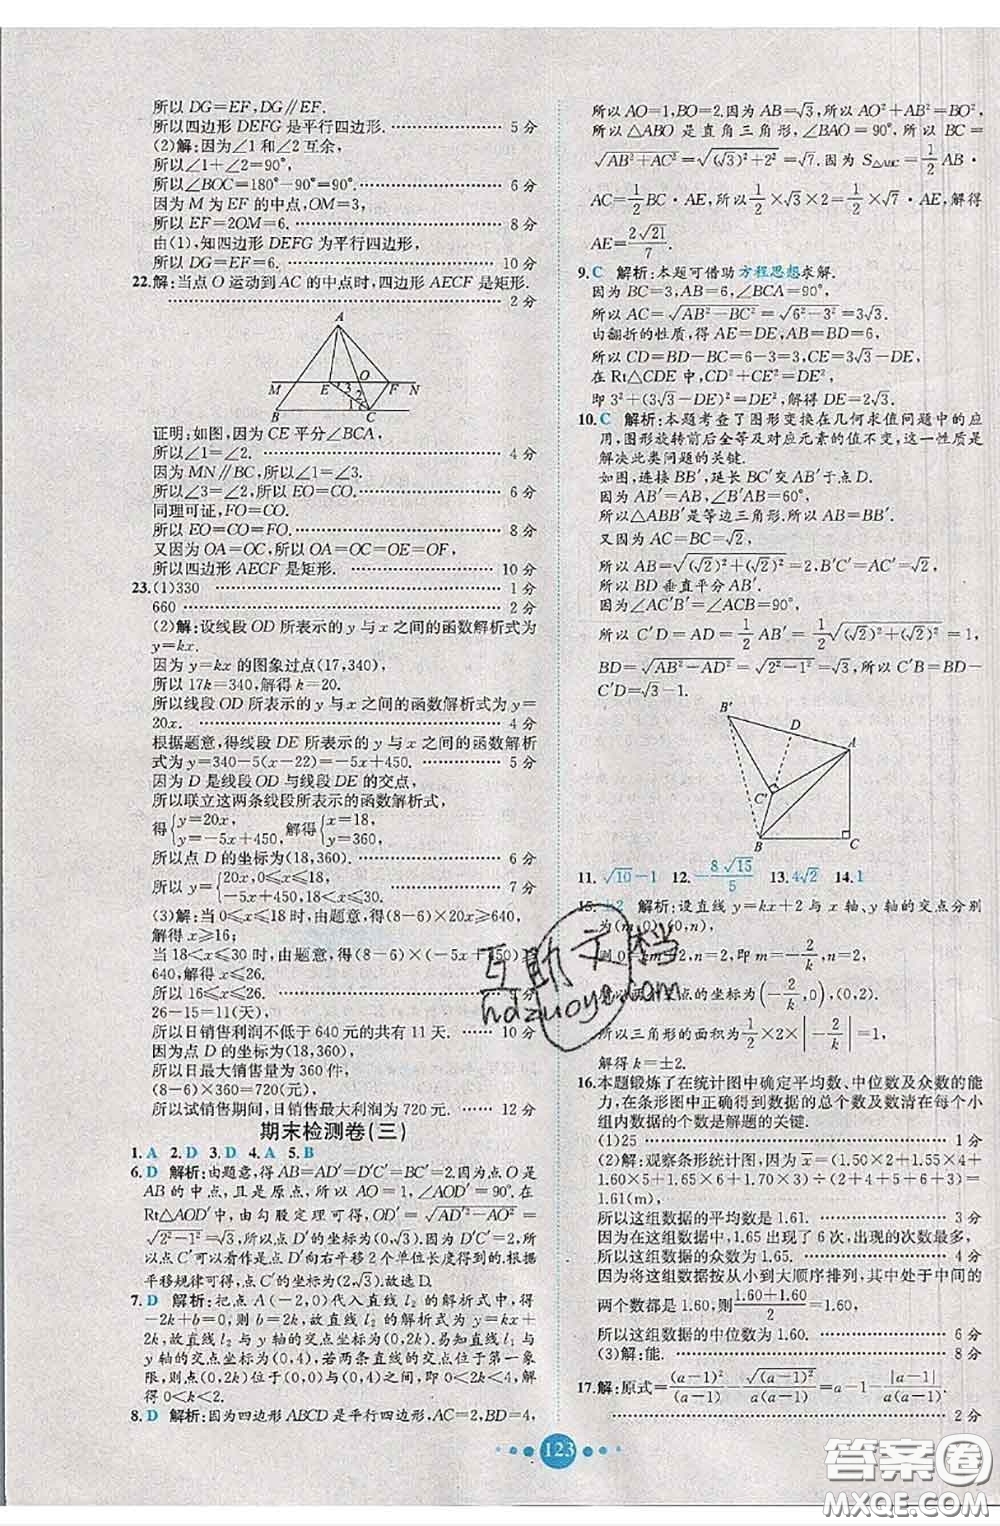 所以 DG=EF,DG∥EF.
所以四边形 DEFG 是平行四边形. 5 分
(2)解:因为∠1 和∠2 互余,
所以∠1+∠2=90°,
所以∠BOC=180°-90°=90°. 6 分
因为 M 为 EF 的中点,OM=3,
所以 EF=2OM=6. 8 分
由(1),知四边形 DEFG 为平行四边形,
所以 DG=EF=6. 10 分
22.解:当点 O 运动到 AC 的中点时,四边形 AECF 是矩形.
2 分
A
M E O F N
3 2 1
B C
证明:如图,因为 CE 平分∠BCA,
所以∠1=∠2. 4 分
因为 MN∥BC,所以∠1=∠3.
所以∠3=∠2,所以 EO=CO. 6 分
同理可证,FO=CO.
所以 EO=CO=FO. 8 分
又因为 OA=OC,所以 OA=OC=OE=OF,
所以四边形 AECF 是矩形. 10 分
23.(1)330 1 分
660 2 分
(2)解:设线段 OD 所表示的 y 与 x 之间的函数解析式为
y=kx.
因为 y=kx 的图象过点(17,340),
所以 17k=340,解得 k=20.
所以线段 OD 所表示的 y 与 x 之间的函数解析式为 y=
20x. 4 分
根据题意,得线段 DE 所表示的 y 与 x 之间的函数解析
式为 y=340-5(x-22)=-5x+450. 5 分
因为 D 是线段 OD 与线段 DE 的交点,
所以联立这两条线段所表示的函数解析式,
得{y=20x, y=-5x+450, 解得{x=18, y=360,
所以点 D 的坐标为(18,360). 6 分
所以 y={20x,0≤x≤18, -5x+450,18<x≤30. 7 分
(3)解:当 0≤x≤18 时,由题意,得(8-6)×20x≥640,
解得 x≥16;
当 18<x≤30 时,由题意,得(8-6)×(-5x+450)≥
640,解得 x≤26.
所以 16≤x≤26.
26-15=11(天),
所以日销售利润不低于 640 元的共有 11 天. 10 分
因为点 D 的坐标为(18,360),
所以日最大销售量为 360 件,
(8-6)×360=720(元),
所以试销售期间,日销售最大利润为 720 元. 12 分
期末检测卷(三)
1. A 2. D 3. D 4. A 5. B
6. D 解析:由题意,得 AB=AD′=D′C′=BC′=2.因为点 O 是
AB 的中点,且是原点,所以 AO=1,∠AOD′=90°.在
Rt△AOD′中,由勾股定理可得,OD′=√(AD′²-AO²)=
√(2²-1²)=√3,所以点 D′的坐标为(0,√3).因为 D′C′=2,所
以点 C′可以看作是点 D′向右平移 2 个单位长度得到的.根据
平移规律可得,点 C′的坐标为(2,√3).故选 D.
7. D 解析:把点 A(-2,0)代入直线 l₂ 的解析式中,得
-2k+b=0,则 b=2k,故直线 l₂ 的解析式为 y=kx+
2k,故直线 l₂ 与 y 轴的交点坐标为(0,2k).易知直线 l₁ 与
y 轴的交点坐标为(0,4),若两条直线的交点位于第一象
限,则点(0,2k)位于点(0,0)与点(0,4)之间,即 0<2k<4,解
得 0<k<2.
8. D 解析:因为四边形 ABCD 是平行四边形,AC=2,BD=4,
所以 AO=1,BO=2.因为 AB=√3,所以 AO²+AB²=BO²,
所以△ABO 是直角三角形,∠BAO=90°,所以 BC=
√(AB²+AC²)=√((√3)²+2²)=√7.因为 S△ABC=1/2 AB·
AC=1/2 BC·AE,所以 1/2×√3×2=1/2×√7·AE,解得
AE=2√21/7.
9. C 解析:本题可借助方程思想求解.
因为 BC=3,AB=6,∠BCA=90°,
所以 AC=√(AB²-BC²)=√(6²-3²)=3√3.
由翻折的性质,得 AE=DE,AB=BD=6,
所以 CD=BD-BC=6-3=3,CE=3√3-DE,
在 Rt△CDE 中,CD²+CE²=DE²,
即 3²+(3√3-DE)²=DE²,解得 DE=2√3.
10. C 解析:本题考查了图形变换在几何求值问题中的应
用,图形旋转前后全等及对应元素的值不变,这一性质是
解决此类问题的关键.
如图,连接 BB′,延长 BC′交 AB′于点 D.
因为 AB′=AB,∠B′AB=60°,
所以△ABB′是等边三角形.所以 AB=BB′.
又因为 AC=BC=√2,
所以 AB=√((√2)²+(√2)²)=2,B′C′=AC′=√2,
所以 BD 垂直平分 AB′.
因为∠AC′B′=∠ACB=90°,
所以 C′D=AD=1/2 AB′=1/2√((√2)²+(√2)²)=1,
BD=√(AB²-AD²)=√(2²-1²)=√3,所以 C′B=BD-
C′D=√3-1.
B′ D A
C′
B C
11. √10-1 12. -8√15/5 13. 4√2 14. 1
15. ±2 解析:设直线 y=kx+2 与 x 轴、y 轴的交点分别
为(m,0),(0,n),
则 0=km+2,n=2,即 m=-2/k,n=2,
所以两个交点的坐标为(-2/k,0),(0,2).
所以三角形的面积为 1/2×2×|-2/k|=1,
解得 k=±2.
16.本题锻炼了在统计图中确定平均数、中位数及众数的能
力,在条形图中正确得到数据的总个数及数清在每个小
组内数据的个数是解题的关键.
(1)25 1 分
(2)解:观察条形统计图,因为 x̄=(1.50×2+1.55×4+
1.60×5+1.65×6+1.70×3)÷(2+4+5+6+3)=
1.61(m),
所以这组数据的平均数是 1.61. 3 分
因为在这组数据中,1.65 出现了 6 次,出现的次数最多,
所以这组数据的众数为 1.65. 4 分
因为将这组数据按从小到大顺序排列,其中处于中间的
两个数都是 1.60,则(1.60+1.60)/2=1.60,
所以这组数据的中位数为 1.60. 6 分
(3)解:能. 8 分
17.解:原式=(a-1)²/(a-1)-√((a-1)²)/(a(a-1))=a-1-|a-1|/(a(a-1))
2 分
123
互助文档
hdzuoye.com
答案圈
MXQE.COM